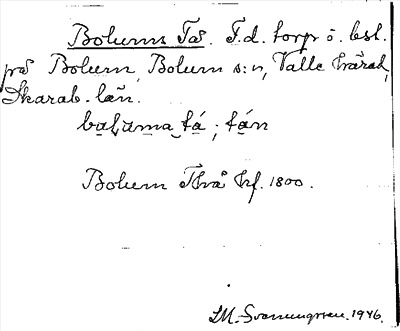 Bolums Tå. F.d. torp o. lsl.
på Bolum, Bolum s:n, Valle härad,
Skarab. län.
bɑlɑmɑ tá ; tán
Bolum Thrå hf. 1800.
LM. Svanungsen. 1946.